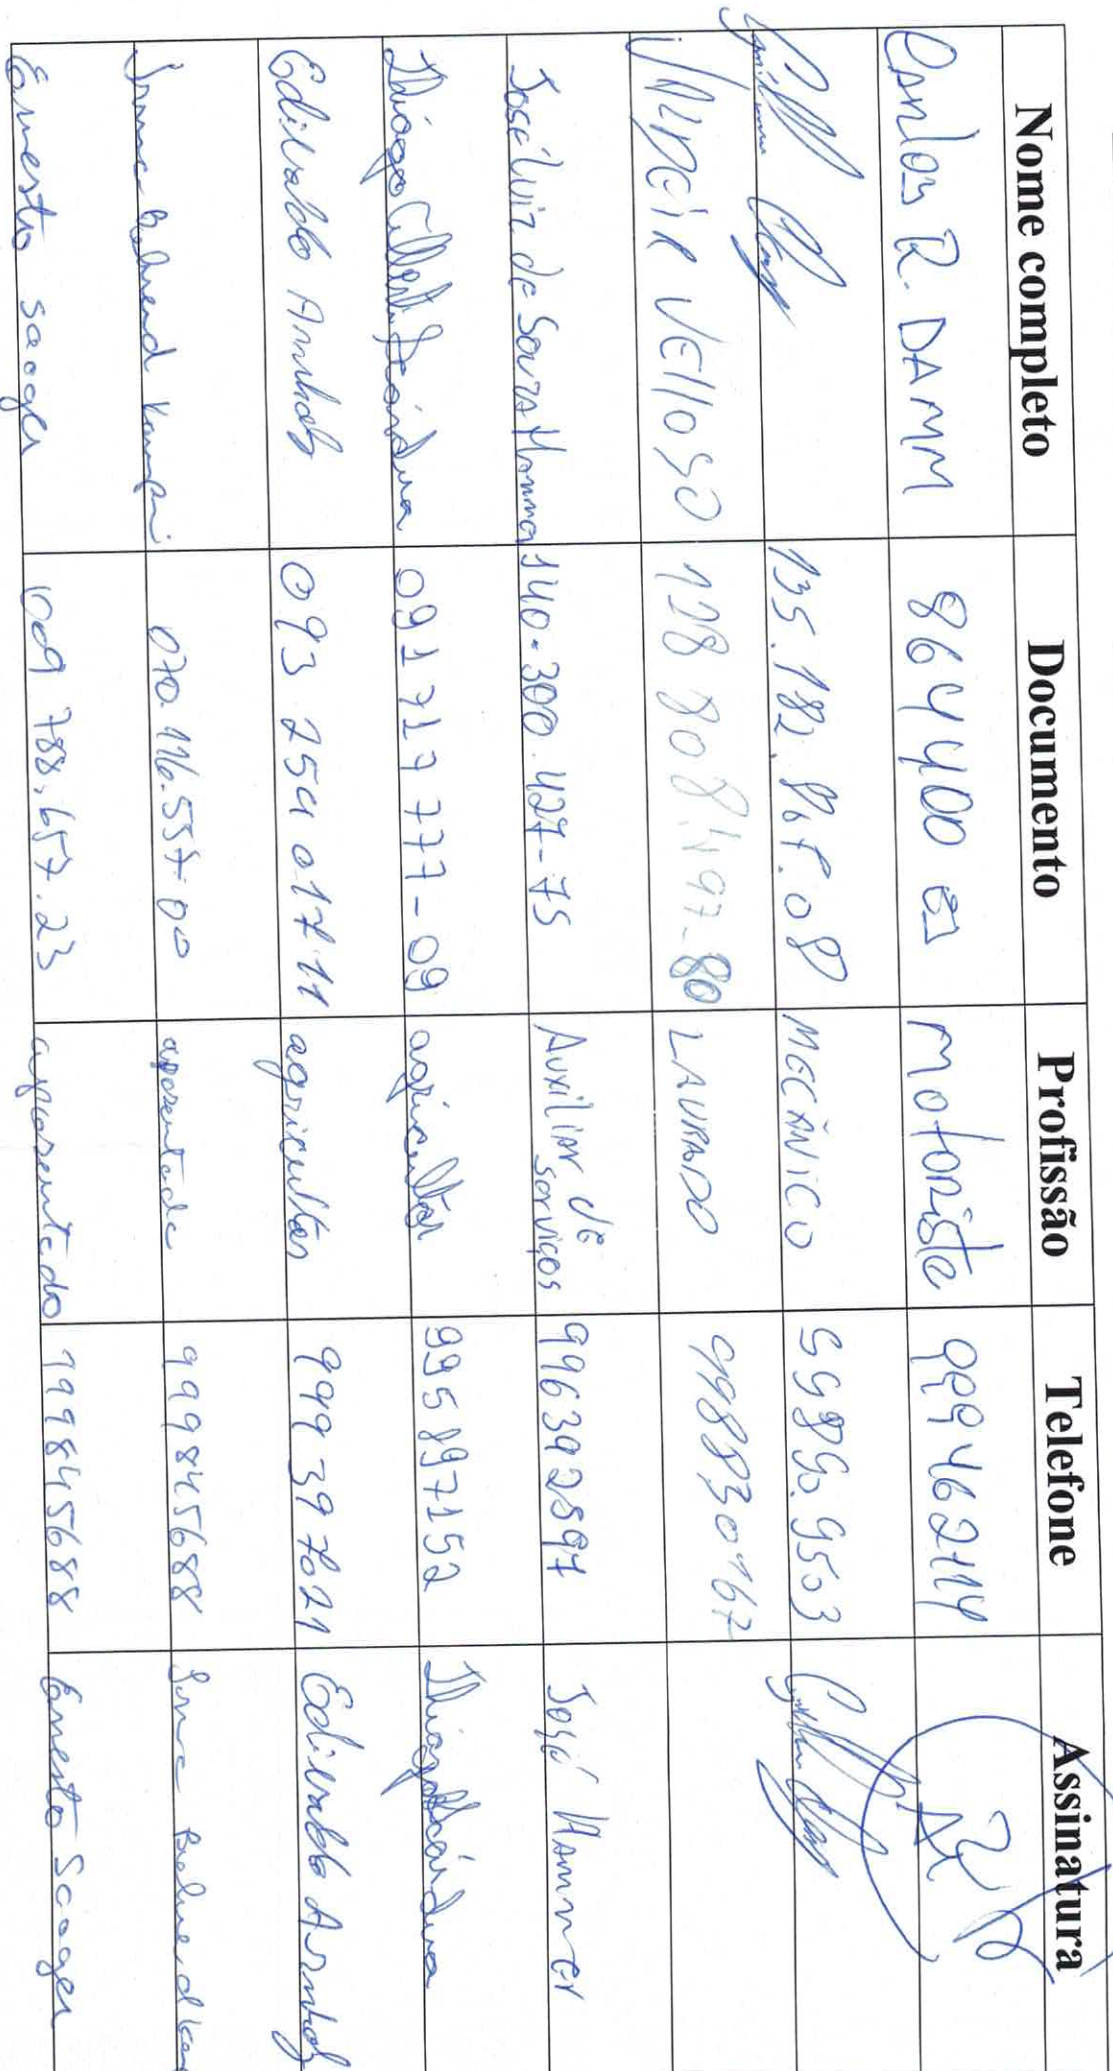 Nome completo Documento Profissão Telefone Assinatura
Carlos R. DAMM 864400 Motorista 999462114
135.182.867.08 MECÂNICO 99890.9503
VALDCIR VEllOSO 128 808 497-80 LAVRADO 998830167
José Luiz de Souza Hammer 140.300.427-75 Auxiliar de serviços 996392897 José Hammer
Thiago 091 717 777-09 agricultor 995897152 Thiago
Edivaldo Arnholz 093 254 017 11 agricultor 999397021 Edivaldo Arnholz
070 116.557-00 aposentada 999845688
Ernesto Saager 009 788.657.23 aposentado 999845688 Ernesto Saager